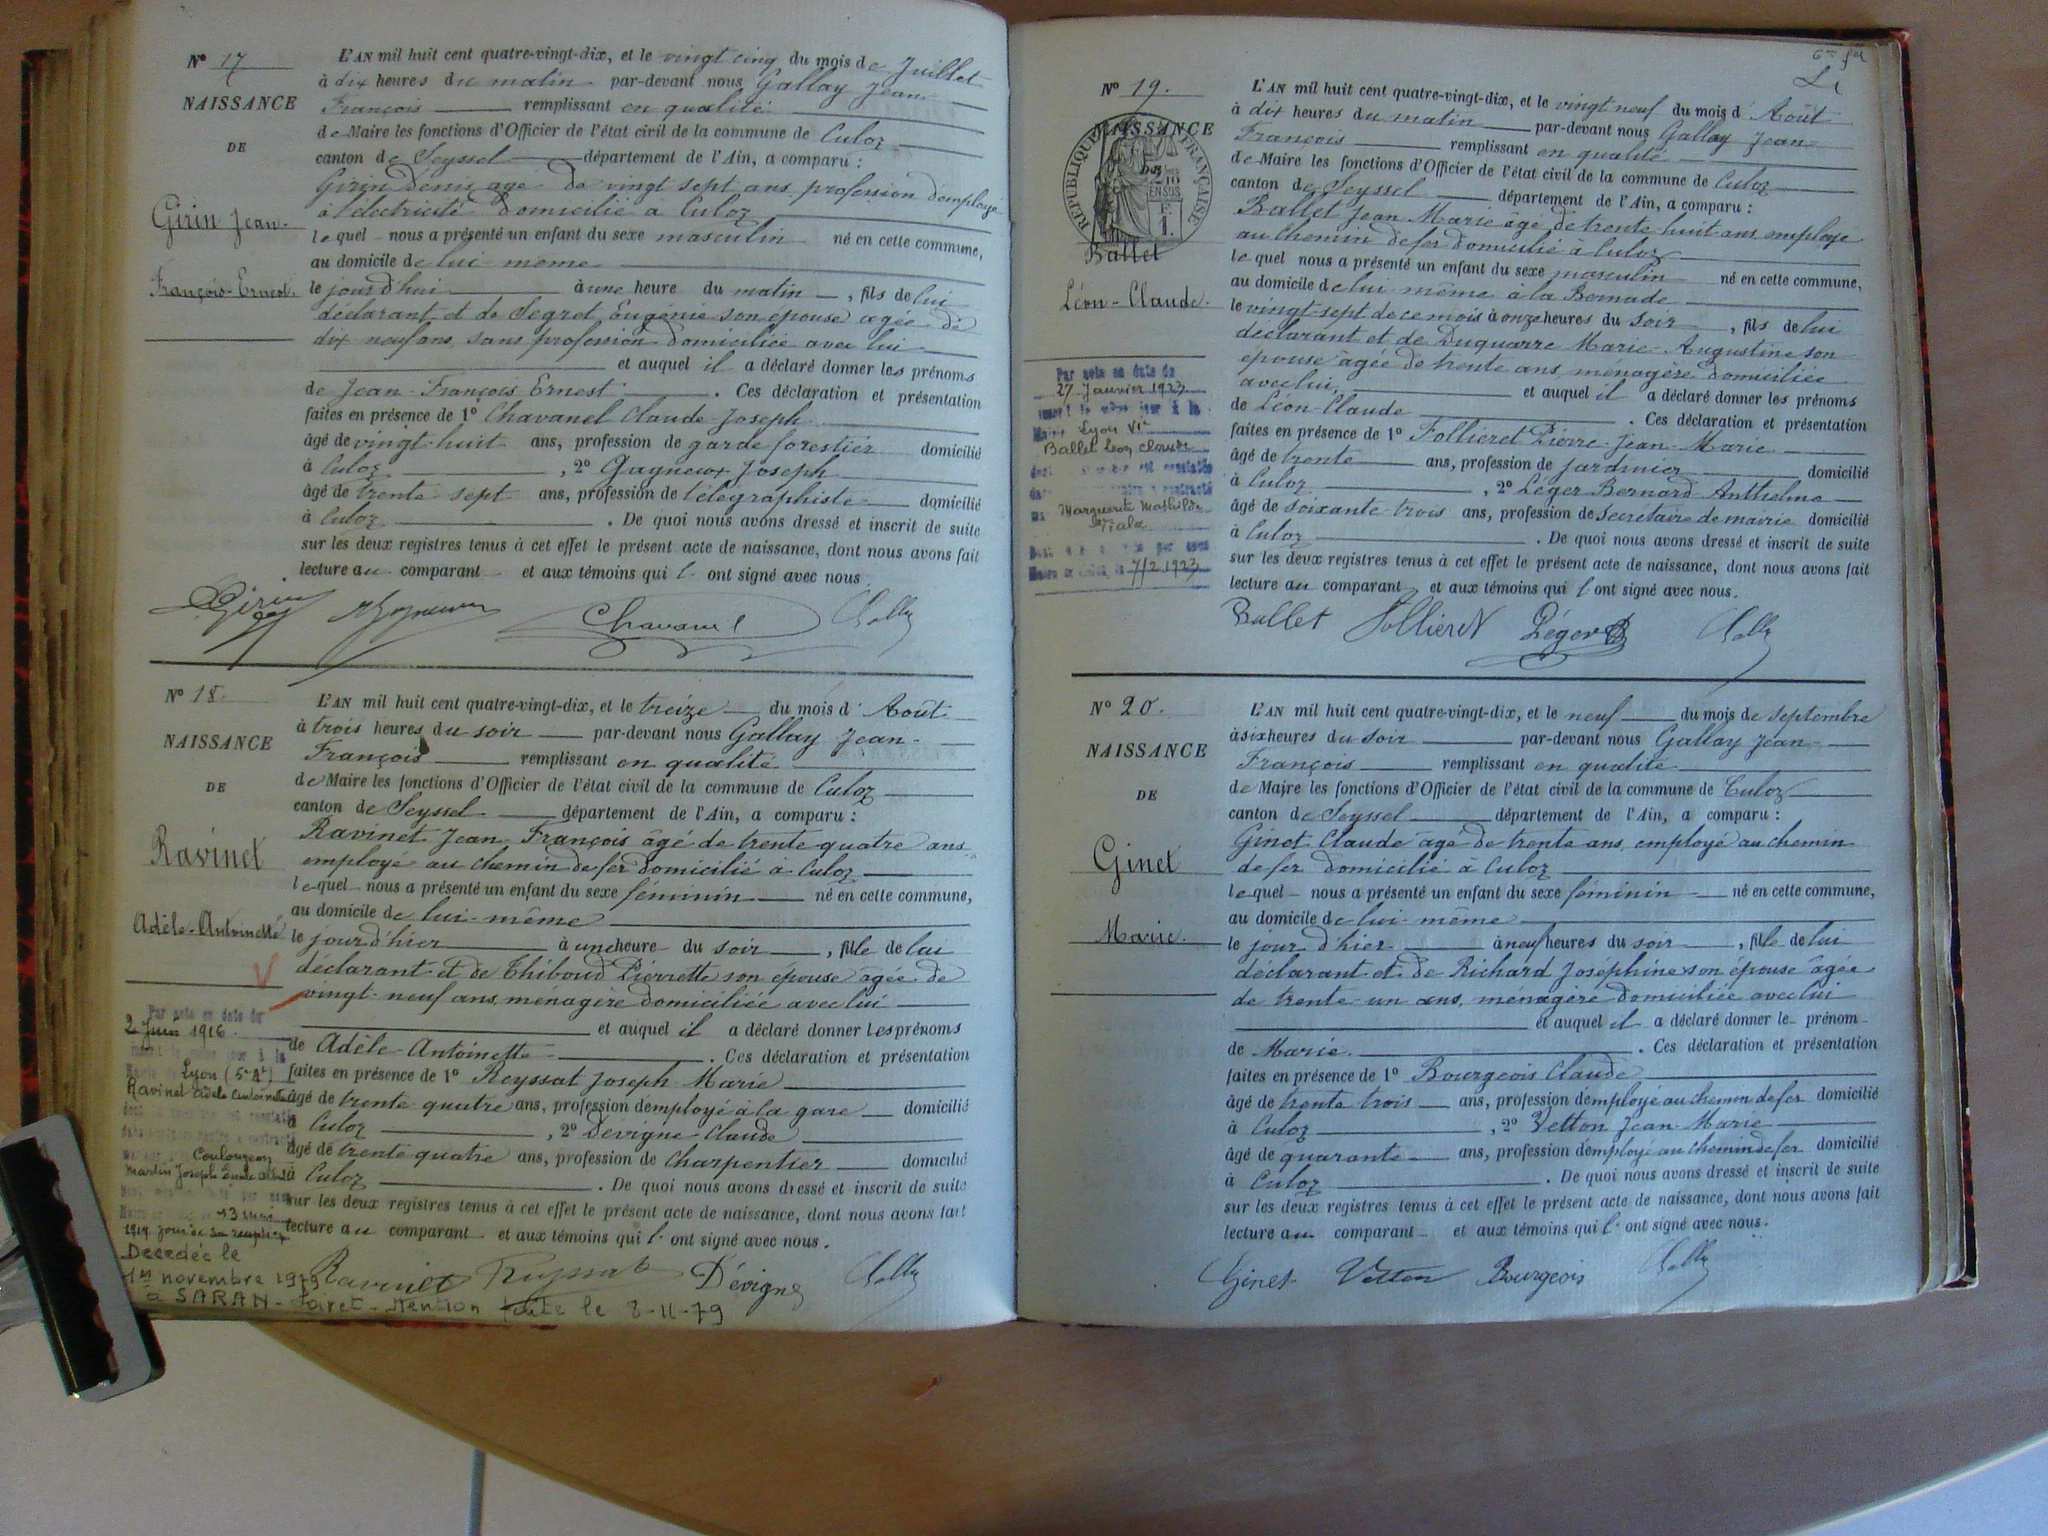 N° 17
NAISSANCE
DE
Girin Jean-
François-Ernest.
L'AN mil huit cent quatre-vingt-dix, et le vingt cinq du mois de Juillet
à dix heures du matin par-devant nous Gallay Jean-
François remplissant en qualité
de Maire les fonctions d'Officier de l'état civil de la commune de Culoz
canton de Seyssel département de l'Ain, a comparu :
Girin Denis agé de vingt sept ans, profession d'employé
à l'électricité domicilié à Culoz
lequel nous a présenté un enfant du sexe masculin né en cette commune,
au domicile de lui-même
le jourd'hui à une heure du matin, fils de lui
déclarant et de Segret Eugénie son épouse agée de
dix neuf ans, sans profession domiciliée avec lui
et auquel il a déclaré donner les prénoms
de Jean-François Ernest. Ces déclaration et présentation
faites en présence de 1° Chavanel Claude-Joseph
âgé de vingt-huit ans, profession de garde forestier domicilié
à Culoz, 2° Gagneux Joseph
âgé de trente sept ans, profession de télégraphiste domicilié
à Culoz. De quoi nous avons dressé et inscrit de suite
sur les deux registres tenus à cet effet le présent acte de naissance, dont nous avons fait
lecture au comparant et aux témoins qui l'ont signé avec nous.
Girin Chavanel
N° 18.
NAISSANCE
DE
Ravinet
Adèle-Antoinette
Par acte en date du
2 Juin 1916
Lyon (5e At)
Ravinet Adèle Antoinette
Coulougeon
Martin Joseph
Décédée le
1er novembre 1979
à SARAN-Loiret-Mention faite le 8-11-79
L'AN mil huit cent quatre-vingt-dix, et le treize du mois d'Août
à trois heures du soir par-devant nous Gallay Jean-
François remplissant en qualité
de Maire les fonctions d'Officier de l'état civil de la commune de Culoz
canton de Seyssel département de l'Ain, a comparu :
Ravinet Jean-François âgé de trente quatre ans
employé au chemin de fer domicilié à Culoz
lequel nous a présenté un enfant du sexe féminin né en cette commune,
au domicile de lui-même
le jour d'hier à une heure du soir, fille de lui
déclarant et de Thiboud Pierrette son épouse âgée de
vingt-neuf ans, ménagère domiciliée avec lui
et auquel il a déclaré donner les prénoms
de Adèle-Antoinette. Ces déclaration et présentation
faites en présence de 1° Reyssat Joseph-Marie
âgé de trente quatre ans, profession d'employé à la gare domicilié
à Culoz, 2° Dévigne Claude
âgé de trente quatre ans, profession de charpentier domicilié
à Culoz. De quoi nous avons dressé et inscrit de suite
sur les deux registres tenus à cet effet le présent acte de naissance, dont nous avons fait
lecture au comparant et aux témoins qui l'ont signé avec nous.
Ravinet Reyssat Dévigne
N° 19.
NAISSANCE
RÉPUBLIQUE FRANÇAISE
Ballet
Léon-Claude.
Par acte en date du
27 Janvier 1923
Mairie Lyon VIe
Ballet Léon Claude
Marguerite Mathilde
7/2 1923
L'AN mil huit cent quatre-vingt-dix, et le vingt neuf du mois d'Août
à dix heures du matin par-devant nous Gallay Jean-
François remplissant en qualité
de Maire les fonctions d'Officier de l'état civil de la commune de Culoz
canton de Seyssel département de l'Ain, a comparu :
Ballet Jean Marie âgé de trente huit ans, employé
au chemin de fer domicilié à Culoz
lequel nous a présenté un enfant du sexe masculin né en cette commune,
au domicile de lui-même à la Bernade
le vingt-sept de ce mois à onze heures du soir, fils de lui
déclarant et de Duquarre Marie-Augustine son
épouse âgée de trente ans, ménagère domiciliée
avec lui, et auquel il a déclaré donner les prénoms
de Léon-Claude. Ces déclaration et présentation
faites en présence de 1° Follieret Pierre-Jean-Marie
âgé de trente ans, profession de Jardinier domicilié
à Culoz, 2° Léger Bernard Anthelme
âgé de soixante-trois ans, profession de Secrétaire de mairie domicilié
à Culoz. De quoi nous avons dressé et inscrit de suite
sur les deux registres tenus à cet effet le présent acte de naissance, dont nous avons fait
lecture au comparant et aux témoins qui l'ont signé avec nous.
Ballet Follieret Léger
N° 20.
NAISSANCE
DE
Ginet
Marie.
L'AN mil huit cent quatre-vingt-dix, et le neuf du mois de septembre
à six heures du soir par-devant nous Gallay Jean-
François remplissant en qualité
de Maire les fonctions d'Officier de l'état civil de la commune de Culoz
canton de Seyssel département de l'Ain, a comparu :
Ginet Claude âgé de trente ans, employé au chemin
de fer domicilié à Culoz
lequel nous a présenté un enfant du sexe féminin né en cette commune,
au domicile de lui-même
le jour d'hier à neuf heures du soir, fille de lui
déclarant et de Richard Joséphine son épouse âgée
de trente-un ans, ménagère domiciliée avec lui
et auquel il a déclaré donner le prénom
de Marie. Ces déclaration et présentation
faites en présence de 1° Bourgeois Claude
âgé de trente trois ans, profession d'employé au chemin de fer domicilié
à Culoz, 2° Vetton Jean-Marie
âgé de quarante ans, profession d'employé au chemin de fer domicilié
à Culoz. De quoi nous avons dressé et inscrit de suite
sur les deux registres tenus à cet effet le présent acte de naissance, dont nous avons fait
lecture au comparant et aux témoins qui l'ont signé avec nous.
Ginet Vetton Bourgeois